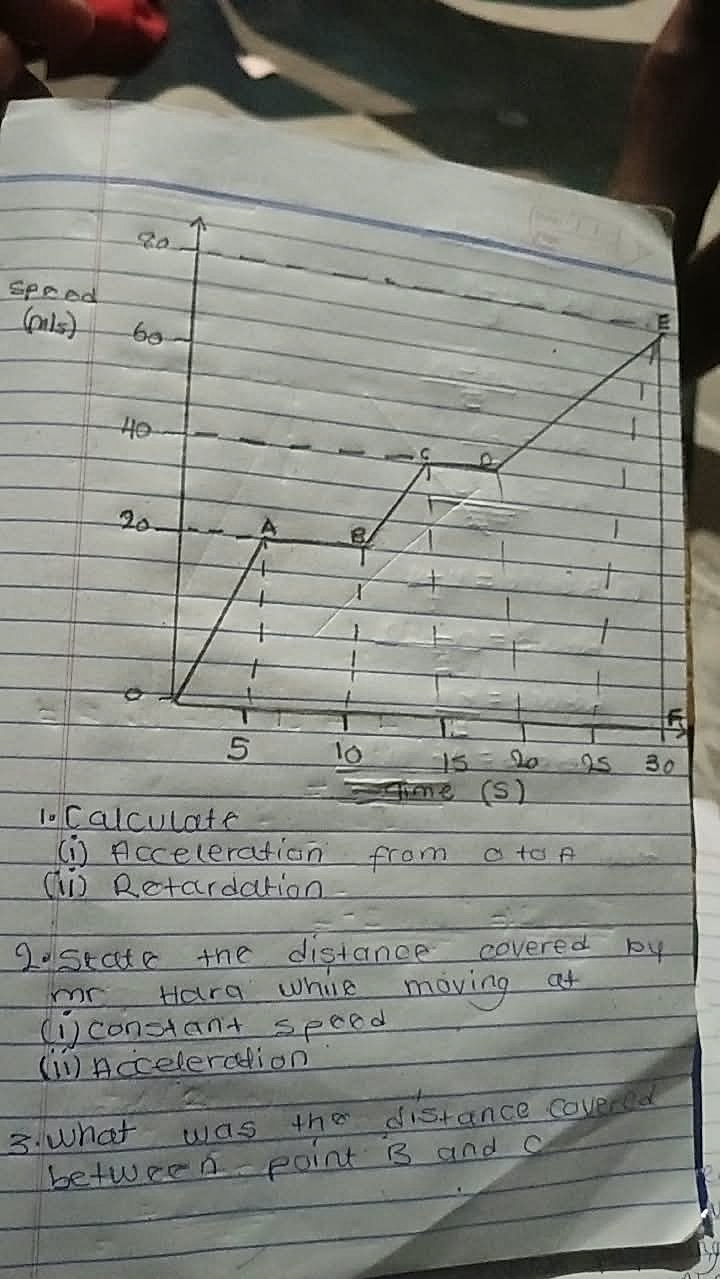 80
E
Speed
(m/s)
60
40
C
D
20
A
B
0
F
5
10
15
20
25
30
Time (S)
1. Calculate
(i) Acceleration from o to A
(ii) Retardation
2. State the distance covered by
mr Hara while moving at
(i) constant speed
(ii) Acceleration
3. What was the distance covered
between point B and C